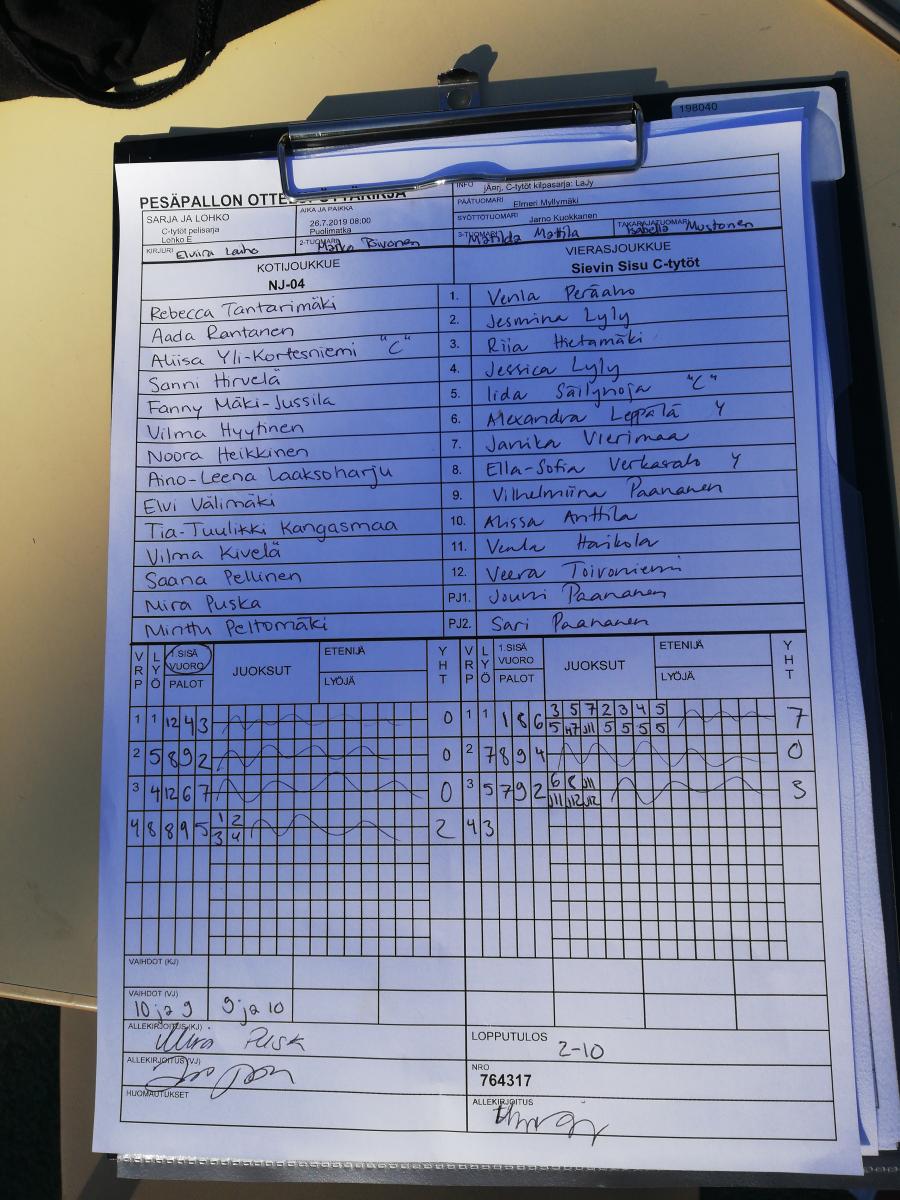 198040
PESÄPALLON OTTELUPÖYTÄKIRJA
INFO jÄerj, C-tytöt kilpasarja: LaJy
SARJA JA LOHKO
C-tytöt pelisarja
Lohko E
AIKA JA PAIKKA
26.7.2019 08:00
Puolimatka
PÄÄTUOMARI Elmeri Myllymäki
SYÖTTÖTUOMARI Jarno Kuokkanen
KIRJURI Elvira Laiho
2-TUOMARI
3-TUOMARI Matilda Mattila
TAKARAJATUOMARI Isabella Mustonen
KOTIJOUKKUE
NJ-04
VIERASJOUKKUE
Sievin Sisu C-tytöt
Rebecca Tantarimäki 1. Venla Peräaho
Aada Rantanen 2. Jesmina Lyly
Aliisa Yli-Kortesniemi "C" 3. Riia Hietamäki
Sanni Hirvelä 4. Jessica Lyly
Fanny Mäki-Jussila 5. Iida Säilynoja "C"
Vilma Hyytinen 6. Alexandra Leppälä Y
Noora Heikkinen 7. Janika Vierimaa
Aino-Leena Laaksoharju 8. Ella-Sofia Verkasalo Y
Elvi Välimäki 9. Vilhelmiina Paananen
Tia-Tuulikki Kangasmaa 10. Alissa Anttila
Vilma Kivelä 11. Venla Haikola
Saana Pellinen 12. Veera Toivoniemi
Mira Puska PJ1. Jouni Paananen
Minttu Peltomäki PJ2. Sari Paananen
VRP LYÖ 1.SISÄ VUORO PALOT JUOKSUT ETENIJÄ LYÖJÄ YHT VRP LYÖ 1.SISÄ VUORO PALOT JUOKSUT ETENIJÄ LYÖJÄ YHT
1 1 12 4 3 0 1 1 1 8 6 3 5 7 2 3 4 5 7
5 J11 5 5 5 5
2 5 8 9 2 0 2 7 8 9 4 0
3 4 12 6 7 0 3 5 7 9 2 6 8 J11 3
J11 J12 J12
4 8 8 9 5 1 2 2 4 3
3 4
VAIHDOT (KJ)
VAIHDOT (VJ)
10 ja 9 9 ja 10
ALLEKIRJOITUS (KJ) Mira Pusk
LOPPUTULOS
2-10
ALLEKIRJOITUS (VJ)
NRO
764317
HUOMAUTUKSET
ALLEKIRJOITUS